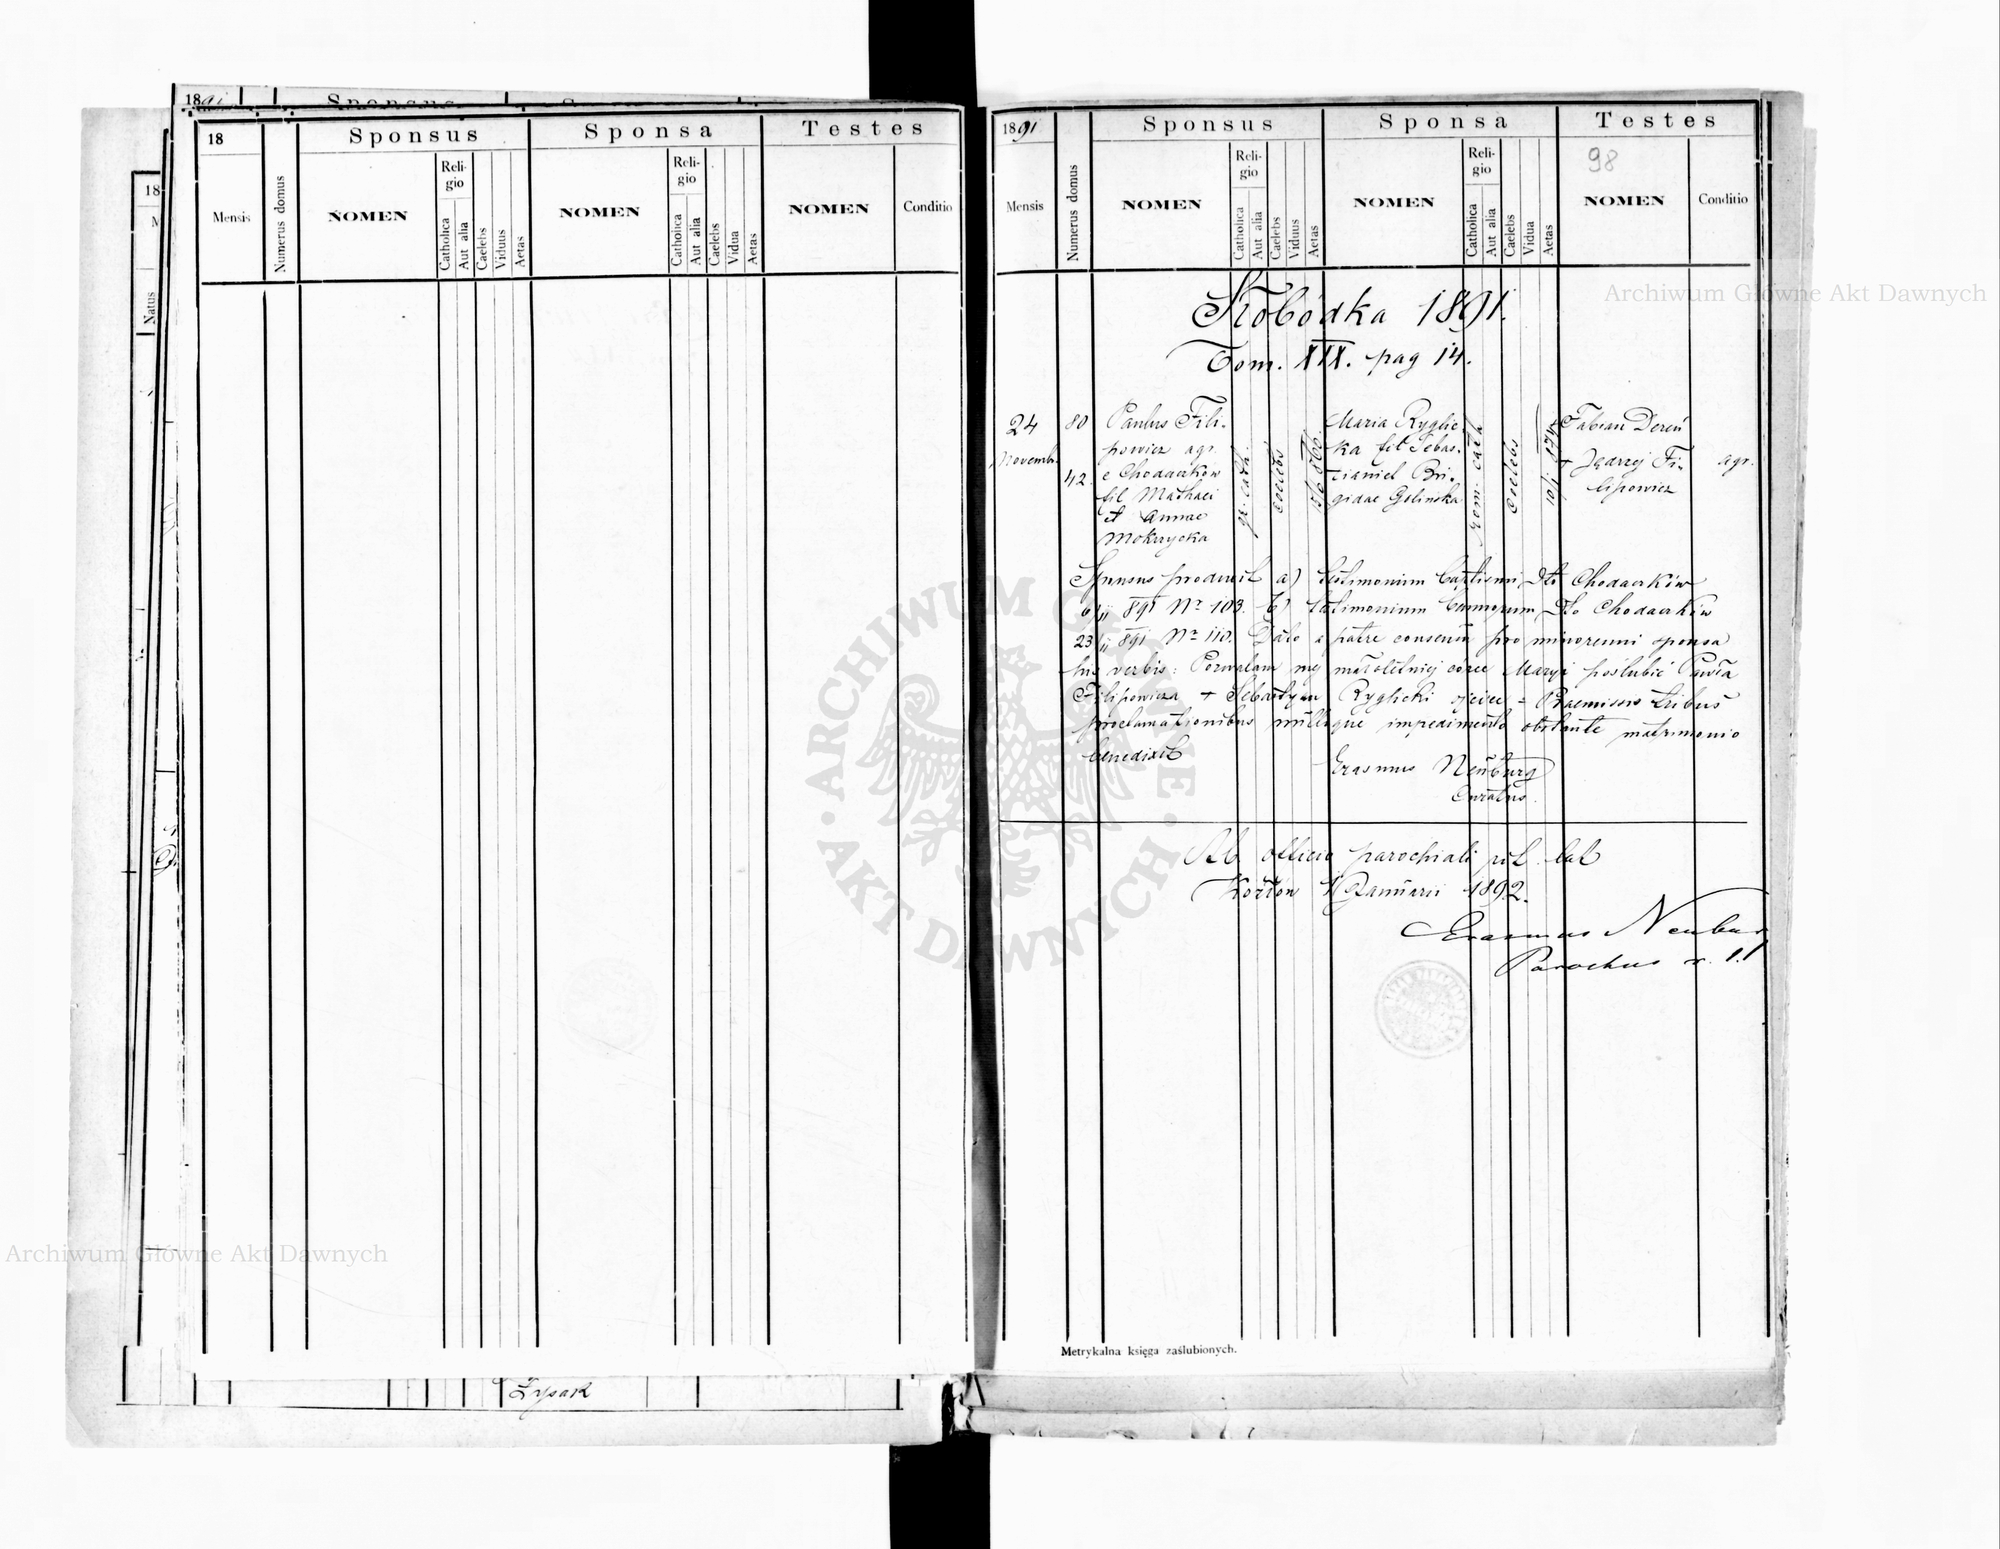 1891
Sponsus
18
Sponsus
Sponsa
Testes
Mensis
Numerus domus
NOMEN
Reli-
gio
Catholica
Aut alia
Caelebs
Viduus
Aetas
NOMEN
Reli-
gio
Catholica
Aut alia
Caelebs
Vidua
Aetas
NOMEN
Conditio
18
M
Natus
Zysak
1891
Sponsus
Sponsa
Testes
98
Mensis
Numerus domus
NOMEN
Reli-
gio
Catholica
Aut alia
Caelebs
Viduus
Aetas
NOMEN
Reli-
gio
Catholica
Aut alia
Caelebs
Vidua
Aetas
NOMEN
Conditio
Słobódka 1891.
Tom. XIX. pag 14.
24
Novemb.
80
42.
Paulus Fili-
powicz agr.
e Chodaczków
fil Mathaei
et Annae
Mokrzycka
gr. cath.
coelebs
Maria Ryglic-
ka fil Sebas-
tiani et Bri-
gidae Golinska
rom. cath
coelebs
10/1 874
Fabian Dereń
+ Jędrzej Fi-
lipowicz
agr.
Sponsus produxit a) testimonium baptismi dto Chodaczków
6/11 891 Nr 103. b) testimonium bannorum dto Chodaczków
23/11 891 Nr 110. Dato a patre consensu pro minorenni sponsa
his verbis: Pozwalam mej małoletniej córce Maryi poślubić Pawła
Filipowicza + Sebastyan Ryglicki ojciec = Praemissis tribus
proclamationibus nulloque impedimento obstante matrimonio
benedixit
Erasmus Neuburg
Curatus.
Ab officio parochiali rit. lat
Kozłów Januarii 1892.
Erasmus Neuburg
Parochus r. l.
Metrykalna księga zaślubionych.
Archiwum Główne Akt Dawnych
Archiwum Główne Akt Dawnych
ARCHIWUM GŁÓWNE AKT DAWNYCH